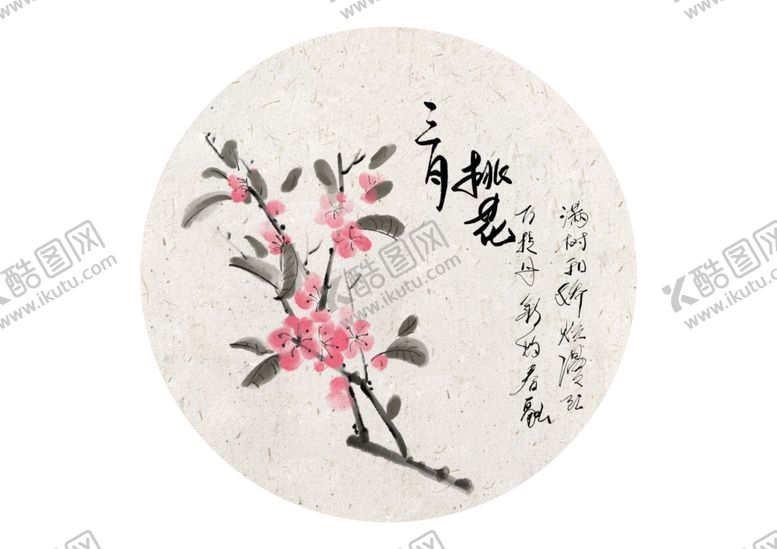 三月
桃花
满树和娇烂漫红
万枝丹彩灼春融
酷图网
www.ikutu.com
酷图网
www.ikutu.com
酷图网
www.ikutu.com